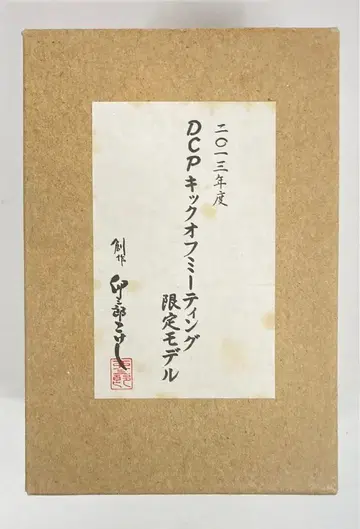 二〇一三年度
DCPキックオフミーティング
限定モデル
創作
卯三郎こけし